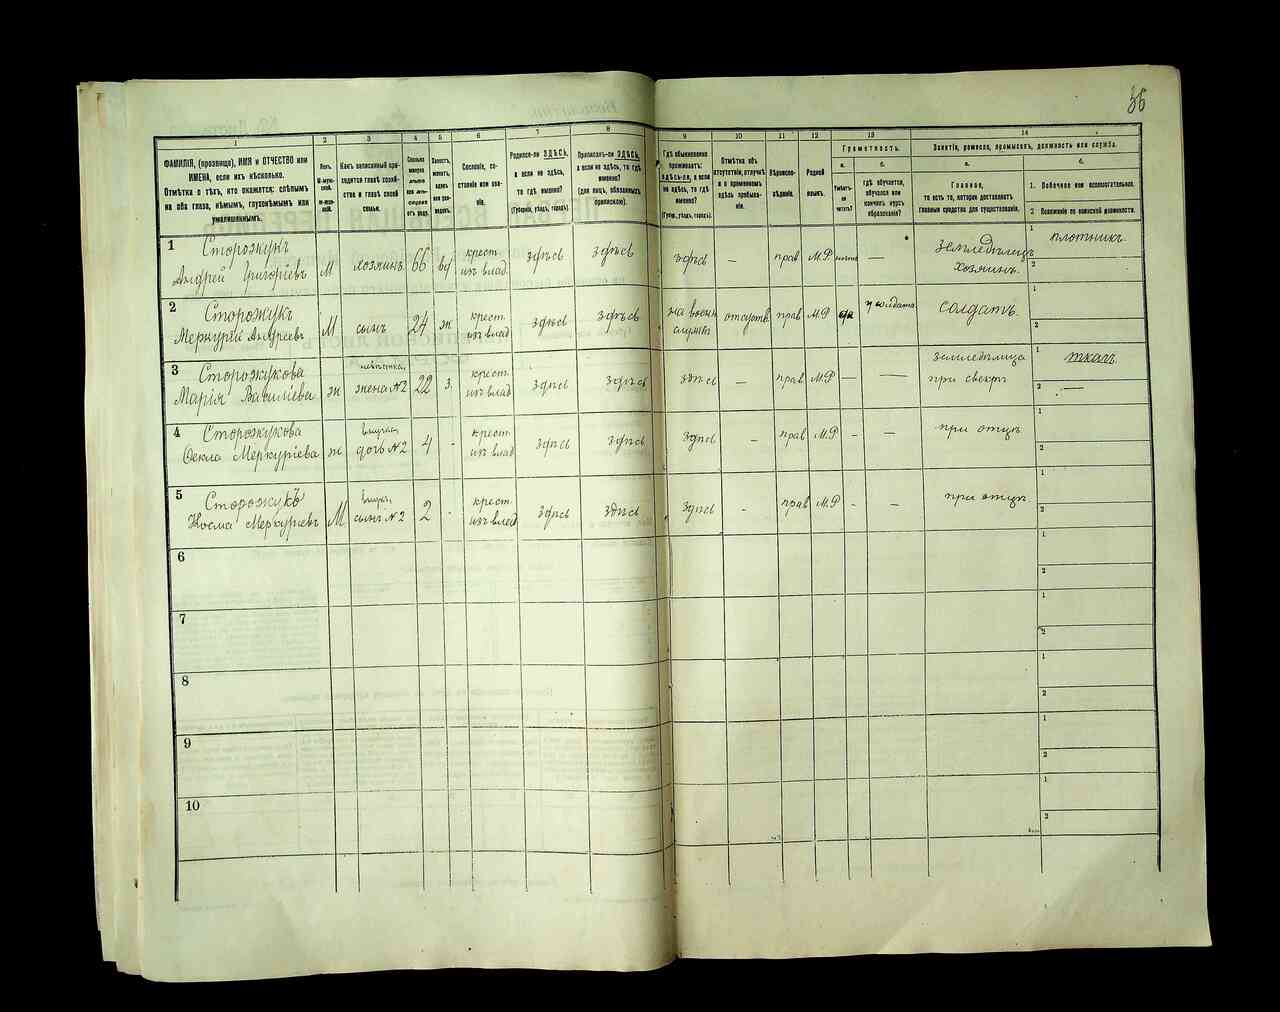 36
1
2
3
4
5
6
7
8
9
10
11
12
13
14
ФАМИЛІЯ, (прозвище), ИМЯ и ОТЧЕСТВО или
ИМЕНА, если ихъ нѣсколько.
Отмѣтка о тѣхъ, кто окажется: слѣпымъ
на оба глаза, нѣмымъ, глухонѣмымъ или
умалишеннымъ.
Полъ.
М-муж-
ской.
Ж-жен-
скій.
Какъ записанный при-
ходится главѣ хозяй-
ства и главѣ своей
семьи.
Сколько
минуло
лѣтъ
отъ роду.
Холостъ,
женатъ,
вдовъ
Сословіе, со-
стояніе или зва-
ніе.
Родился-ли ЗДѢСЬ,
а если не здѣсь,
то гдѣ именно?
(Губернія, уѣздъ, городъ)
Приписанъ-ли ЗДѢСЬ,
а если не здѣсь, то гдѣ
именно?
(для лицъ, обязанныхъ
припискою).
Гдѣ обыкновенно
проживаетъ:
здѣсь-ли, а если
не здѣсь, то гдѣ
именно?
(Губер., уѣздъ, городъ).
Отмѣтка объ
отсутствіи, отлучкѣ
и о временномъ
здѣсь пребыва-
ніи.
Вѣроиспо-
вѣданіе.
Родной
языкъ.
Грамотность.
а.
Умѣетъ-
ли
читать?
б.
гдѣ обучается,
обучался или
кончилъ курсъ
образованія?
Занятіе, ремесло, промыселъ, должность или служба.
а.
Главное,
то есть то, которое доставляетъ
главныя средства для существованія.
б.
1. Побочное или вспомогательное.
2 Положеніе по воинской повинности.
1
Сторожукъ
Андрей Григоріевъ
М
хозяинъ
66
вд
крест.
изъ влад.
здѣсь
здѣсь
здѣсь
—
прав
М.Р.
—
земледѣлецъ
хозяинъ.
1
плотникъ
2
2
Сторожукъ
Меркурій Андреевъ
М
сынъ
24
ж
крест.
изъ влад
здѣсь
здѣсь
на воен
службѣ
отсутств.
прав
М.Р
да
солдатъ.
1
2
3
Сторожукова
Марія Василіева
ж
невѣстка,
жена №2
22
з.
крест.
изъ влад
здѣсь
здѣсь
здѣсь
—
прав
М.Р
—
—
земледѣлица
при свекрѣ
1
ткач.
2
—
4
Сторожукова
Ѳекла Меркуріева
ж
внучка,
дочь №2
4
-
крест.
изъ влад
здѣсь
здѣсь
здѣсь
-
прав
М.Р
-
—
при отцѣ
1
2
5
Сторожукъ
Косма Меркуріевъ
М
внукъ,
сынъ №2
2
-
крест.
изъ влад
здѣсь
здѣсь
здѣсь
-
прав
М.Р
-
—
при отцѣ
1
2
6
1
2
7
1
2
8
1
2
9
1
2
10
1
2